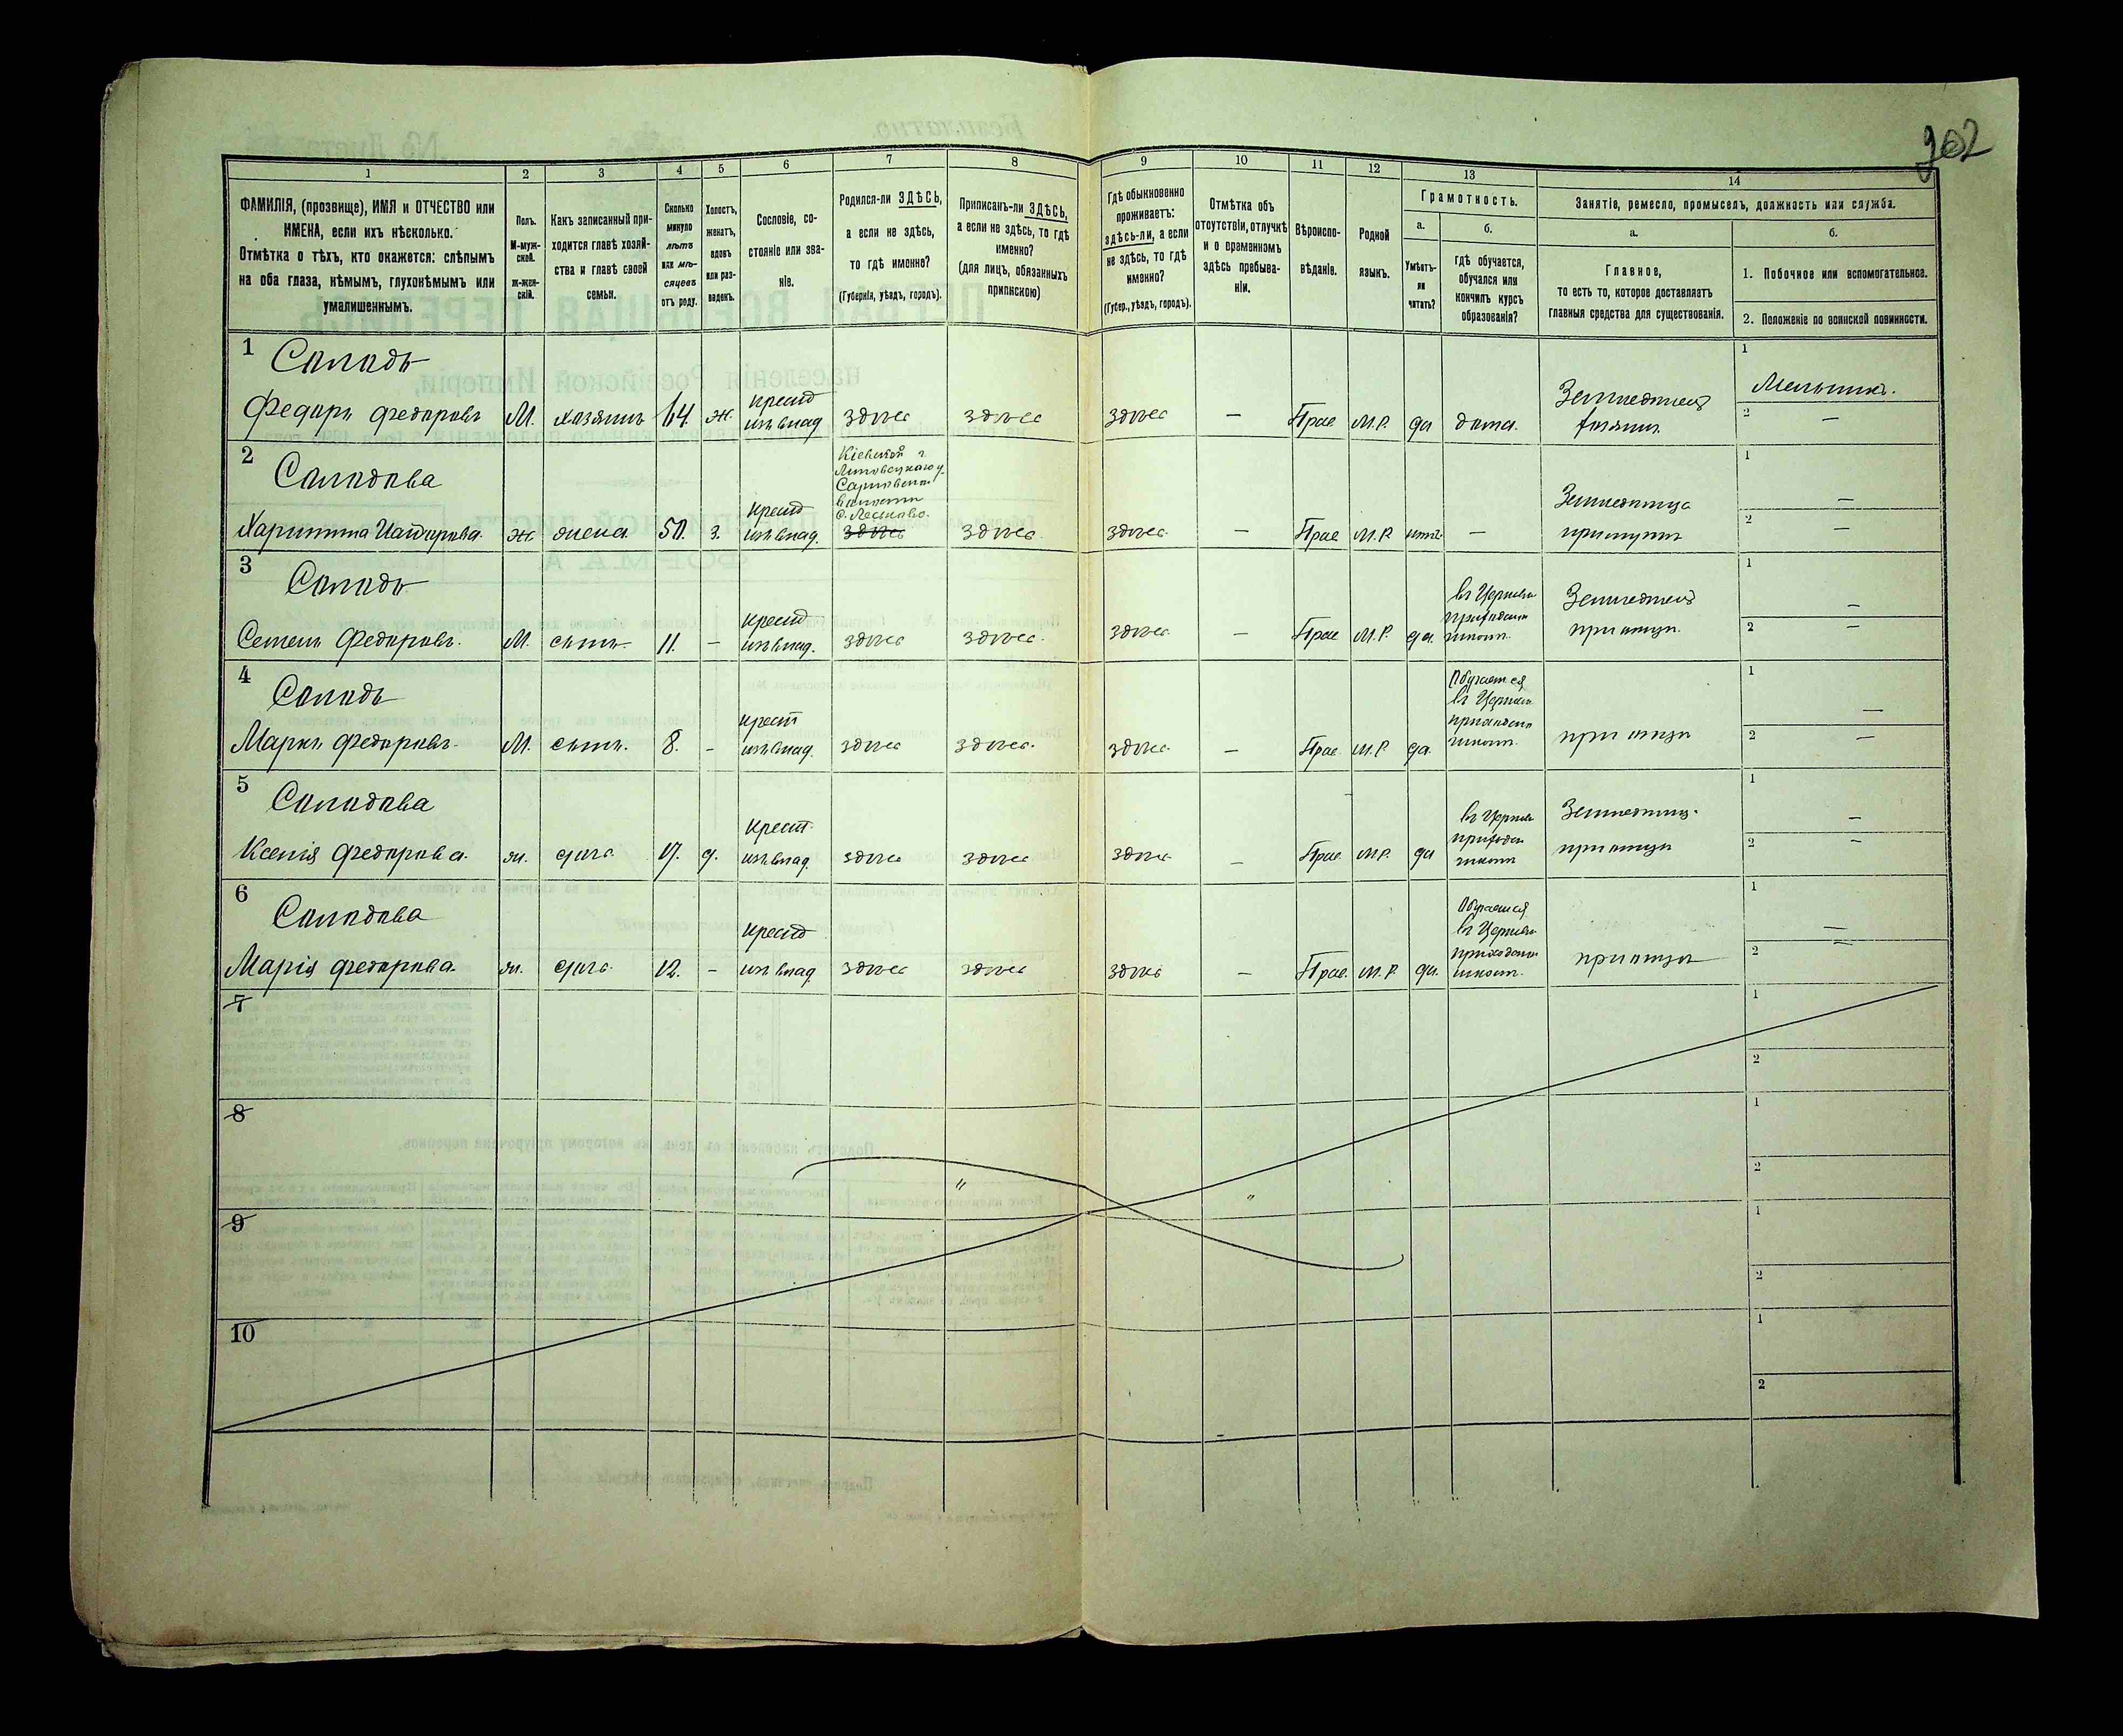 902
1 2 3 4 5 6 7 8 9 10 11 12 13 14
ФАМИЛІЯ, (прозвище), ИМЯ и ОТЧЕСТВО или
ИМЕНА, если ихъ нѣсколько.
Отмѣтка о тѣхъ, кто окажется: слѣпымъ
на оба глаза, нѣмымъ, глухонѣмымъ или
умалишеннымъ.
Полъ.
М-муж-
ской.
ж-жен-
скій.
Какъ записанный при-
ходится главѣ хозяй-
ства и главѣ своей
семьи.
Сколько
минуло
лѣтъ
или мѣ-
сяцевъ
отъ роду.
Холостъ,
женатъ,
вдовъ
или раз-
веденъ.
Сословіе, со-
стояніе или зва-
ніе.
Родился-ли ЗДѢСЬ,
а если не здѣсь,
то гдѣ именно?
(Губернія, уѣздъ, городъ).
Приписанъ-ли ЗДѢСЬ,
а если не здѣсь, то гдѣ
именно?
(для лицъ, обязанныхъ
припискою)
Гдѣ обыкновенно
проживаетъ:
здѣсь-ли, а если
не здѣсь, то гдѣ
именно?
(Губер., уѣздъ, городъ).
Отмѣтка объ
отсутствіи, отлучкѣ
и о временномъ
здѣсь пребыва-
ніи.
Вѣроиспо-
вѣданіе.
Родной
языкъ.
Грамотность.
а.
Умѣетъ-
ли
читать?
б.
гдѣ обучается,
обучался или
кончилъ курсъ
образованія?
Занятіе, ремесло, промыселъ, должность или служба.
а.
Главное,
то есть то, которое доставляетъ
главныя средства для существованія.
б.
1. Побочное или вспомогательное.
2. Положеніе по воинской повинности.
1 Солодъ
Федоръ Федоровъ М. хозяинъ 64 ж. крест изъ влад здѣсь здѣсь здѣсь — Прав М.Р. да дома. Земледѣлец хозяинъ 1 Мельникъ. 2 —
2 Солодова
Харитина жена 50. з. крест изъ влад. Кіевской г. Липовецкаго у. волости здѣсь здѣсь здѣсь — Прав М.Р нѣтъ — Земледѣлица 1 — 2 —
3 Солодъ
Семенъ Федоровъ. М. сынъ 11. — крест изъ влад. здѣсь здѣсь здѣсь — Прав М.Р. да въ Церковн приходской школѣ Земледѣлец при отцѣ 1 — 2 —
4 Солодъ
Маркъ Федоровъ М. сынъ. 8. - крест изъ влад. здѣсь здѣсь. здѣсь — Прав М.Р да Обучается въ Церковн приходской школѣ при отцѣ 1 — 2 —
5 Солодова
Ксенія Федорова. ж. дочь 17. д. крест. изъ влад. здѣсь здѣсь здѣсь — Прав. М.Р. да въ Церков приходск школѣ Земледѣлиц. при отцѣ 1 — 2 —
6 Солодова
Марія Федорова. ж. дочь 12. - крест изъ влад. здѣсь здѣсь здѣсь — Прав. М.Р да. Обучается въ Церковн приходской школѣ. при отцѣ 1 — 2 —
7 1 2
8 1 2
9 1 2
10 1 2